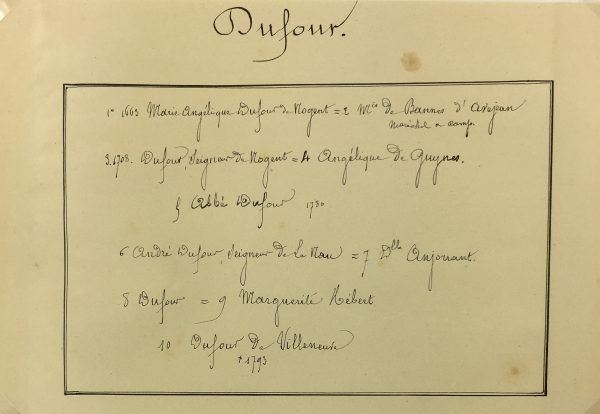 Dufour.
1° 1663 Marie Angélique Dufour de Nogent = 2 Mis de Bannes d'Avejean
Maréchal de camp.
3. 1708. Dufour, Seigneur de Nogent = 4 Angélique de Guynes.
5 Abbé Dufour 1730
6 André Dufour, Seigneur de La Nau = 7 Dlle Anjorrant.
8 Dufour = 9 Marguerite Hébert
10 Dufour de Villeneuve
† 1793